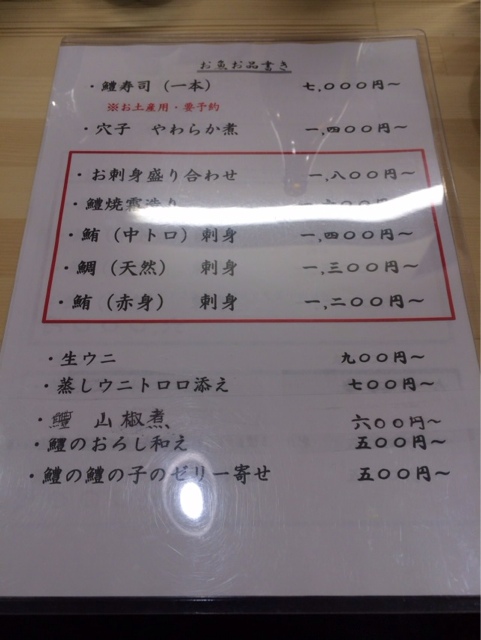 お魚お品書き
・鱧寿司（一本） 七,〇〇〇円～
※お土産用・要予約
・穴子 やわらか煮 一,四〇〇円～
・お刺身盛り合わせ 一,八〇〇円～
・鱧焼霜造り 一,六〇〇円～
・鮪（中トロ）刺身 一,四〇〇円～
・鯛（天然） 刺身 一,三〇〇円～
・鮪（赤身） 刺身 一,二〇〇円～
・生ウニ 九〇〇円～
・蒸しウニトロロ添え 七〇〇円～
・鱧 山椒煮 六〇〇円～
・鱧のおろし和え 五〇〇円～
・鱧の鱧の子のゼリー寄せ 五〇〇円～